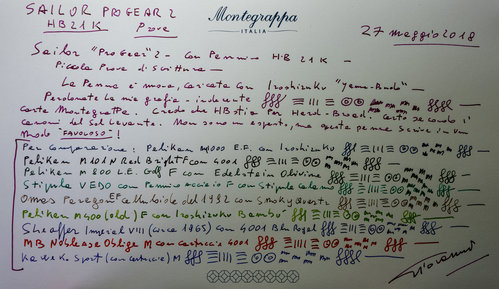 SAILOR PROGEAR 2
HB 21K Prove
Montegrappa
ITALIA
27 maggio 2018
Sailor "ProGear" 2 - con Pennino H-B 21K -
Piccole Prove di scrittura -
La Penna è nuova, caricata con Iroshizuku "Yama-Budo"
Perdonate la mia grafia - indecente
Carta Montegrappa. Credo che HB stia Per Hard-Broad. Certo secondo i
canoni del Sol Levante. Non sono un esperto, ma questa penna scrive in un
modo "FAVOLOSO"!
Per comparazione: Pelikan M1000 E.F. con Iroshizuku
Pelikan M101N Red Bright F con 4001
Pelikan M800 L.E. F con Edelstein Olivine
Stipula VEDO con Pennino acciaio F con Stipula Calamo
Omas Paragon EF celluloide del 1992 con Smoky Quartz
Pelikan M400 (old) F con Iroshizuku Bambù
Sheaffer Imperial VIII (circa 1965) con 4001 Blu Royal
MB Noblesse Oblige M con cartuccia 4001
Kaweko Sport (con cartuccia) M
Giovanni